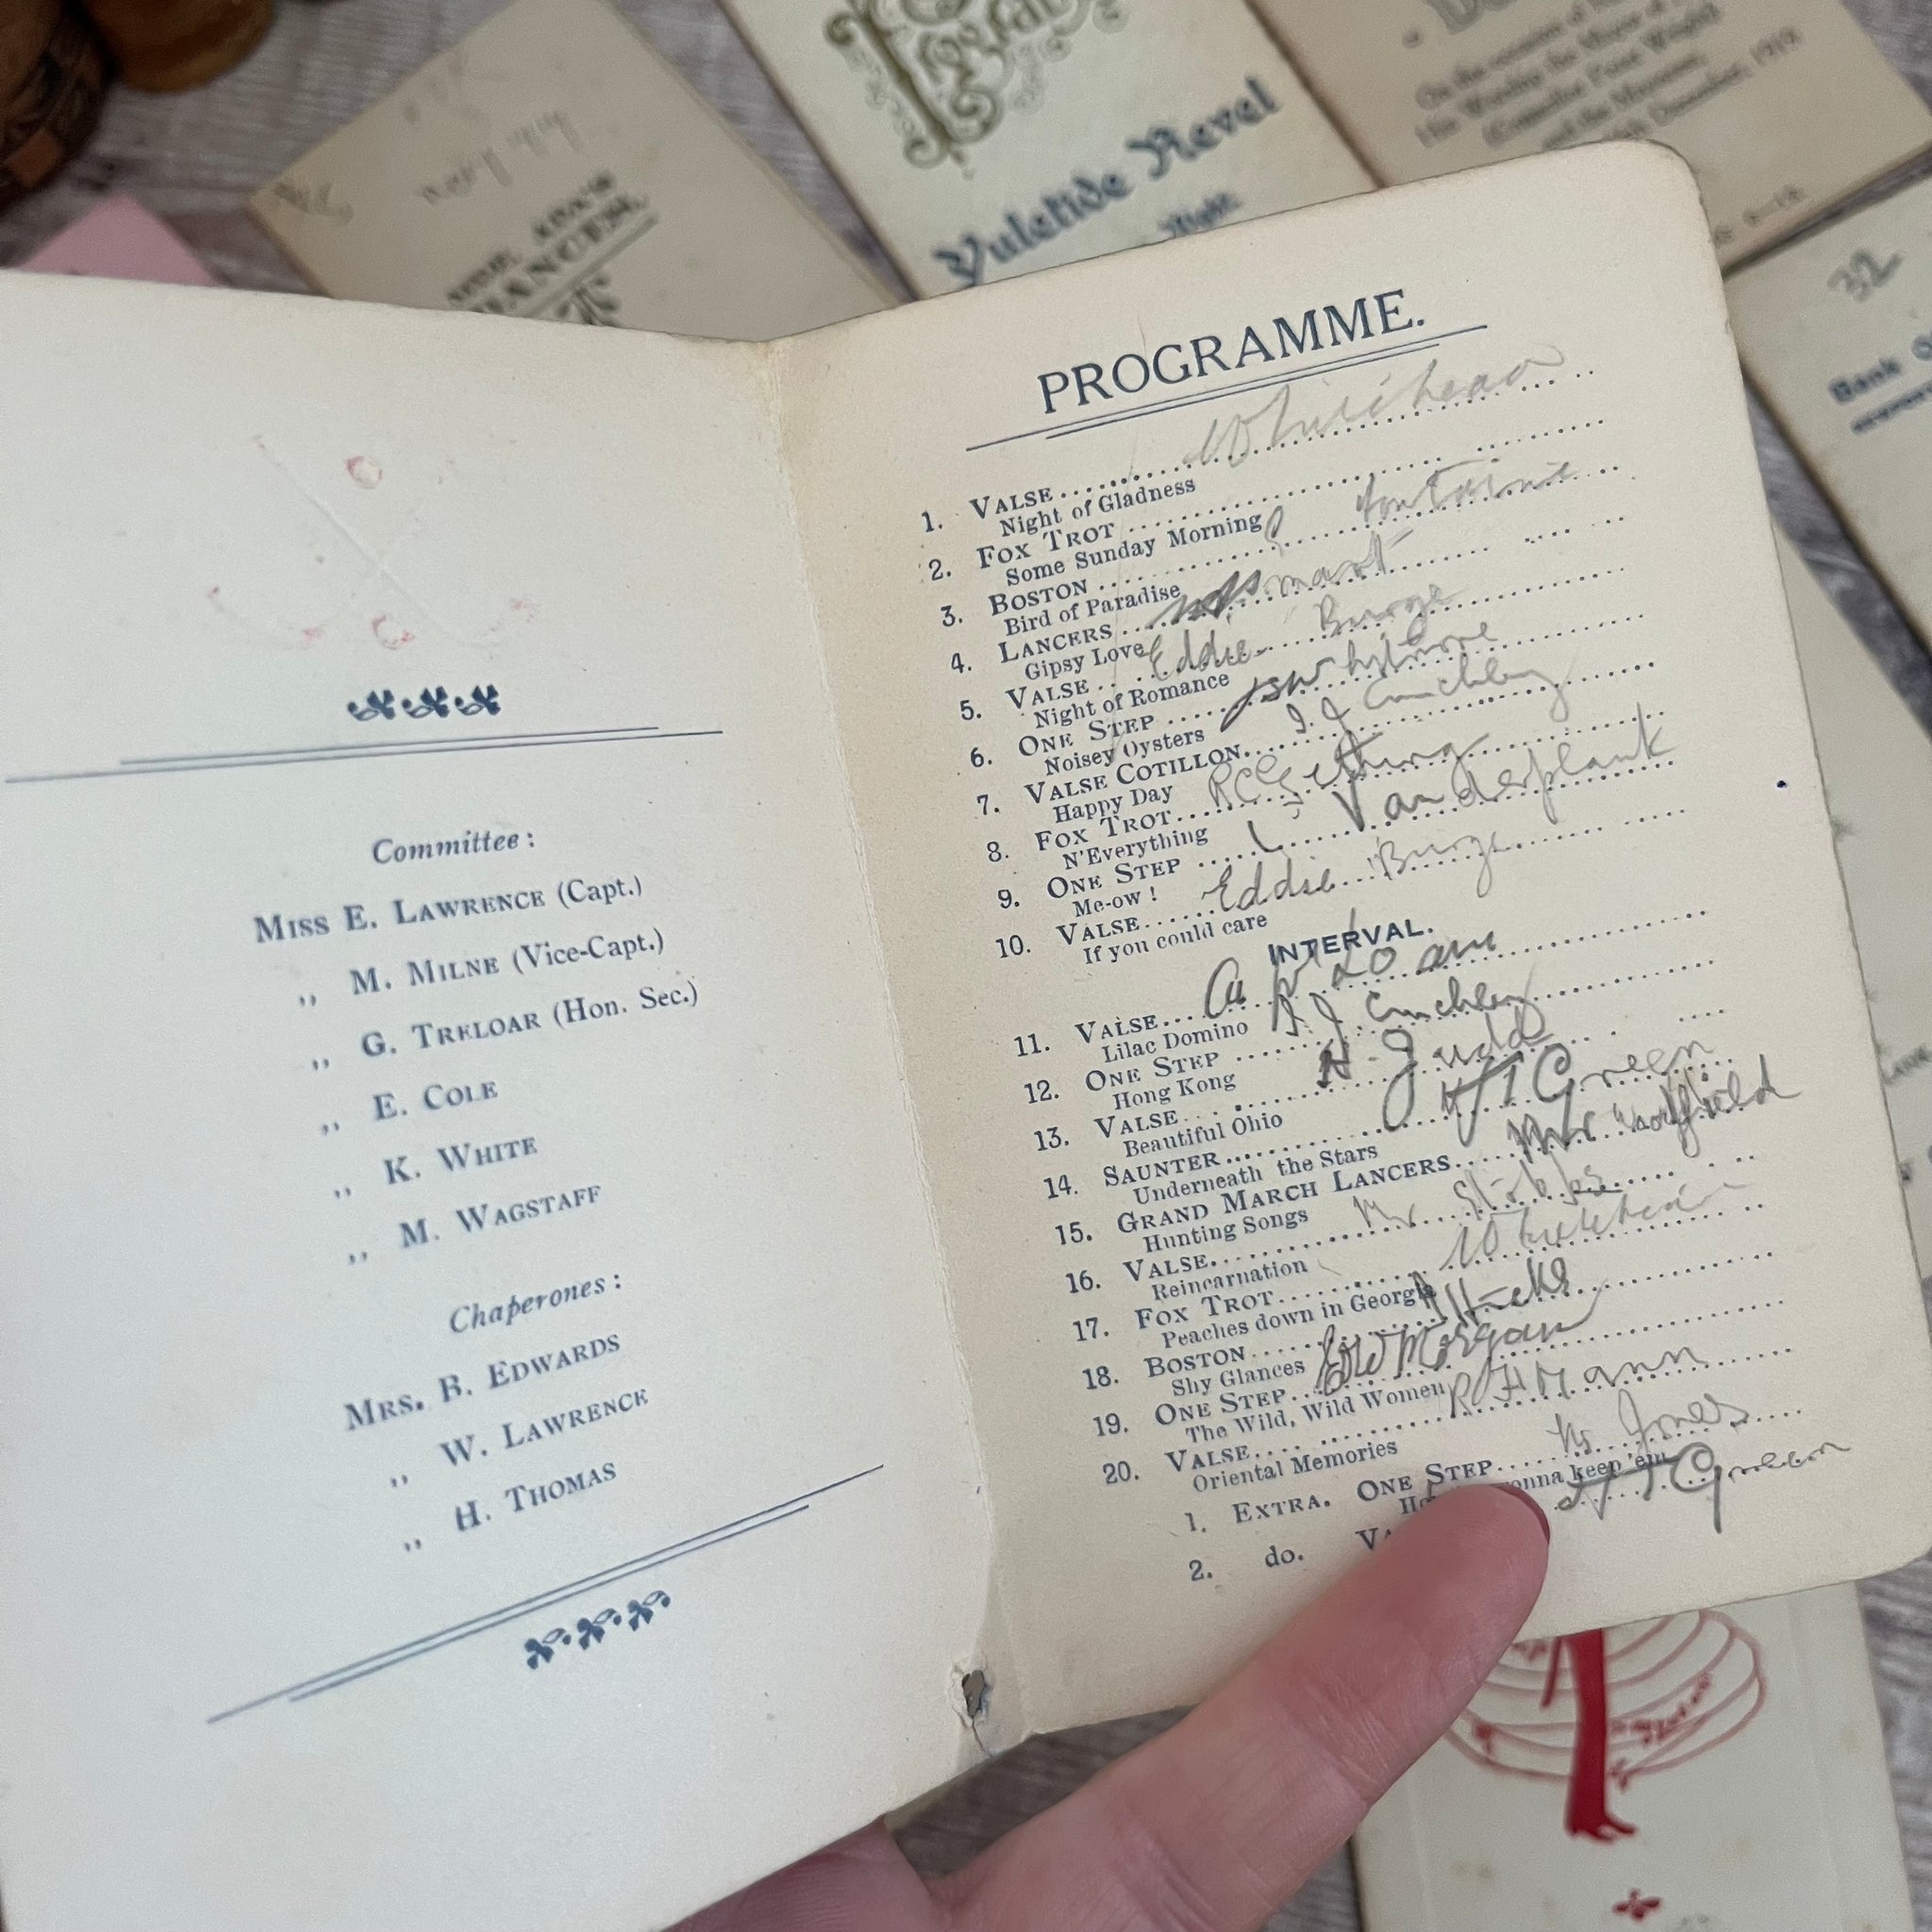 Yuletide Revel
Night
32
Bank
Committee:
Miss E. Lawrence (Capt.)
,, M. Milne (Vice-Capt.)
,, G. Treloar (Hon. Sec.)
,, E. Cole
,, K. White
,, M. Wagstaff
Chaperones:
Mrs. B. Edwards
,, W. Lawrence
,, H. Thomas
PROGRAMME.
Whitehead
1. Valse
Night of Gladness
2. Fox Trot
Some Sunday Morning
3. Boston
Bird of Paradise
4. Lancers
Gipsy Love
5. Valse Eddie Burge
Night of Romance
6. One Step
Noisey Oysters
7. Valse Cotillon
Happy Day
8. Fox Trot R C Gething
N'Everything
9. One Step L Vanderplank
Me-ow!
10. Valse Eddie Burge
If you could care
INTERVAL.
11. Valse
Lilac Domino
12. One Step
Hong Kong
13. Valse H. Judd
Beautiful Ohio
14. Saunter H T Green
Underneath the Stars
15. Grand March Lancers Mr Woodfield
Hunting Songs
16. Valse Mr
Reincarnation
17. Fox Trot Whitehead
Peaches down in Georgia
18. Boston Hicks
Shy Glances
19. One Step Morgan
The Wild, Wild Women
20. Valse R H Mann
Oriental Memories
1. Extra. One Step Jones
onna keep 'em
2. do. Va H T Green